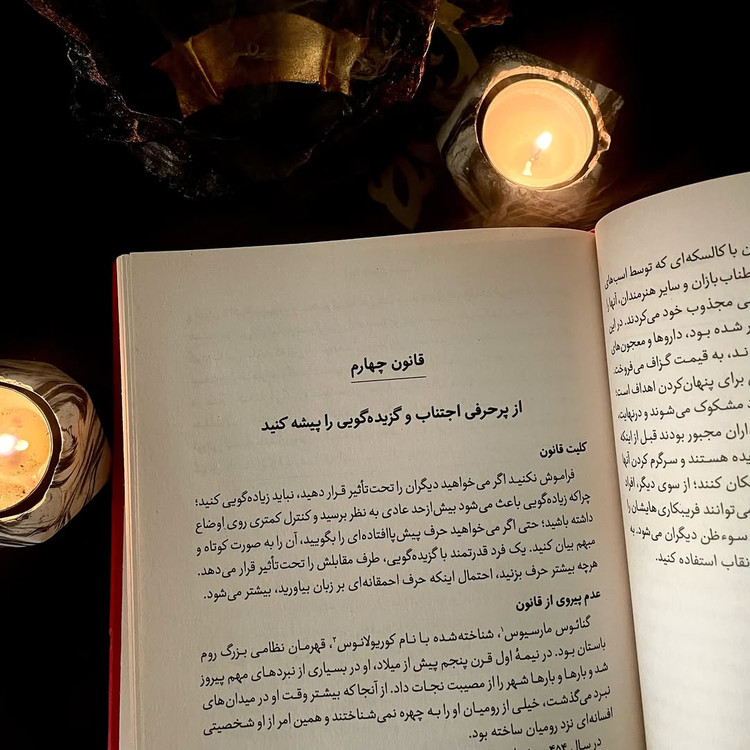 با کالسکه‌ای که توسط اسب‌های
طناب‌بازان و سایر هنرمندان، آنها را
مجذوب خود می‌کردند. در این
شده بود، داروها و معجون‌های
به قیمت گزاف می‌فروختند.
برای پنهان‌کردن اهداف است؛
مشکوک می‌شوند و درنهایت،
مجبور بودند قبل از اینکه
هستند و سرگرم کردن آنها
کنند؛ از سوی دیگر، افراد
می‌توانند فریبکاری‌هایشان را
سوءظن دیگران می‌شود. به
نقاب استفاده کنید.
قانون چهارم
از پرحرفی اجتناب و گزیده‌گویی را پیشه کنید
کلیت قانون
فراموش نکنید اگر می‌خواهید دیگران را تحت‌تأثیر قرار دهید، نباید زیاده‌گویی کنید؛
چراکه زیاده‌گویی باعث می‌شود بیش‌ازحد عادی به نظر برسید و کنترل کمتری روی اوضاع
داشته باشید؛ حتی اگر می‌خواهید حرف پیش‌پاافتاده‌ای را بگویید، آن را به صورت کوتاه و
مبهم بیان کنید. یک فرد قدرتمند با گزیده‌گویی، طرف مقابلش را تحت‌تأثیر قرار می‌دهد.
هرچه بیشتر حرف بزنید، احتمال اینکه حرف احمقانه‌ای بر زبان بیاورید، بیشتر می‌شود.
عدم پیروی از قانون
گنائوس مارسیوس۱، شناخته‌شده با نام کوریولانوس۲، قهرمان نظامی بزرگ روم
باستان بود. در نیمهٔ اول قرن پنجم پیش از میلاد، او در بسیاری از نبردهای مهم پیروز
شد و بارها و بارها شهر را از مصیبت نجات داد. از آنجا که بیشتر وقت او در میدان‌های
نبرد می‌گذشت، خیلی از رومیان او را به چهره نمی‌شناختند و همین امر از او شخصیتی
افسانه‌ای نزد رومیان ساخته بود.
در سال ۴۵۴